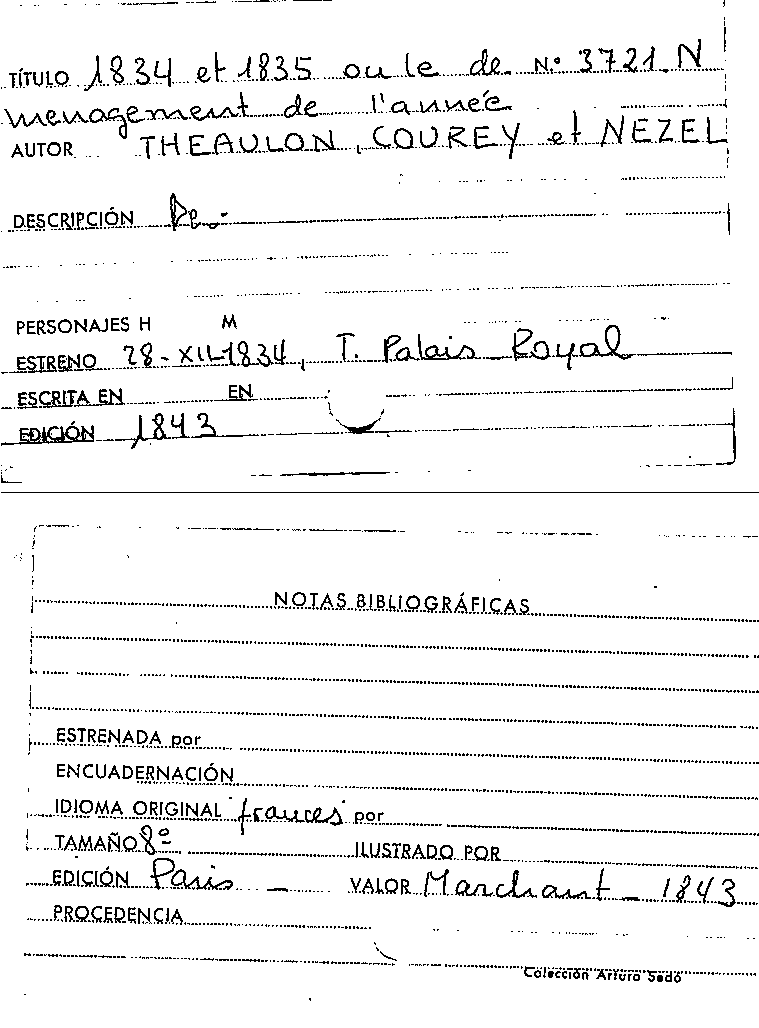 TÍTULO 1834 et 1835 ou le de N.º 3721 N
menagement de l'année
AUTOR THEAULON, COUREY et NEZEL
DESCRIPCIÓN De.-
PERSONAJES H M
ESTRENO 28-XII-1834, T. Palais Royal
ESCRITA EN EN
EDICIÓN 1843
NOTAS BIBLIOGRÁFICAS
ESTRENADA por
ENCUADERNACIÓN
IDIOMA ORIGINAL frances por
TAMAÑO 8º ILUSTRADO POR
EDICIÓN Paris - VALOR Marchant - 1843
PROCEDENCIA
Colección Arturo Sedó